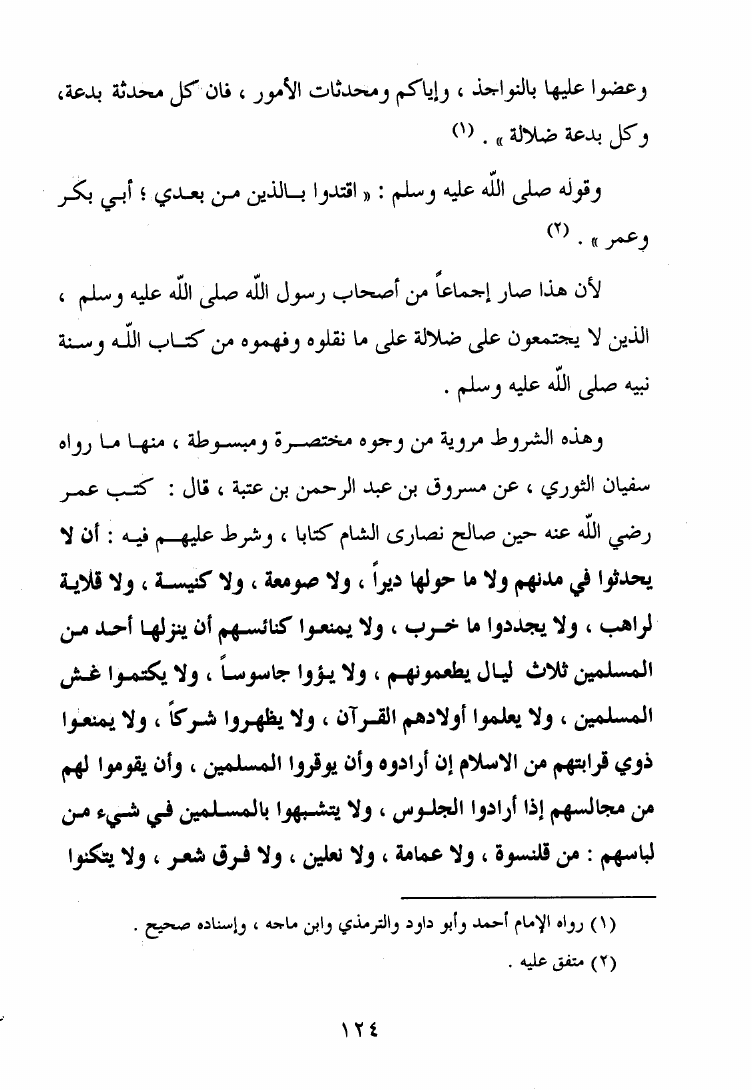 وعضوا عليها بالنواجذ ، وإياكم ومحدثات الأمور ، فان كل محدثة بدعة،
وكل بدعة ضلالة » . (١)
وقوله صلى الله عليه وسلم : « اقتدوا بالذين من بعدي ؛ أبي بكر
وعمر » . (٢)
لأن هذا صار إجماعاً من أصحاب رسول الله صلى الله عليه وسلم ،
الذين لا يجتمعون على ضلالة على ما نقلوه وفهموه من كتاب الله وسنة
نبيه صلى الله عليه وسلم .
وهذه الشروط مروية من وجوه مختصرة ومبسوطة ، منها ما رواه
سفيان الثوري ، عن مسروق بن عبد الرحمن بن عتبة ، قال : كتب عمر
رضي الله عنه حين صالح نصارى الشام كتابا ، وشرط عليهم فيه : أن لا
يحدثوا في مدنهم ولا ما حولها ديراً ، ولا صومعة ، ولا كنيسة ، ولا قلاية
لراهب ، ولا يجددوا ما خرب ، ولا يمنعوا كنائسهم أن ينزلها أحد من
المسلمين ثلاث ليال يطعمونهم ، ولا يؤوا جاسوساً ، ولا يكتموا غش
المسلمين ، ولا يعلموا أولادهم القرآن ، ولا يظهروا شركاً ، ولا يمنعوا
ذوي قرابتهم من الاسلام إن أرادوه وأن يوقروا المسلمين ، وأن يقوموا لهم
من مجالسهم إذا أرادوا الجلوس ، ولا يتشبهوا بالمسلمين في شيء من
لباسهم : من قلنسوة ، ولا عمامة ، ولا نعلين ، ولا فرق شعر ، ولا يتكنوا
(١) رواه الإمام أحمد وأبو داود والترمذي وابن ماجه ، وإسناده صحيح .
(٢) متفق عليه .
١٢٤